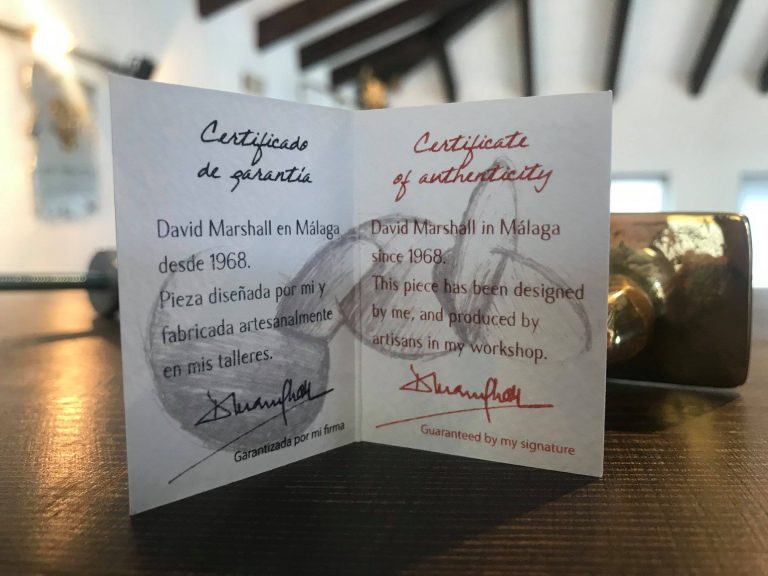 Certificado
de garantía
David Marshall en Málaga
desde 1968.
Pieza diseñada por mi y
fabricada artesanalmente
en mis talleres.
Garantizada por mi firma
Certificate
of authenticity
David Marshall in Málaga
since 1968.
This piece has been designed
by me, and produced by
artisans in my workshop.
Guaranteed by my signature